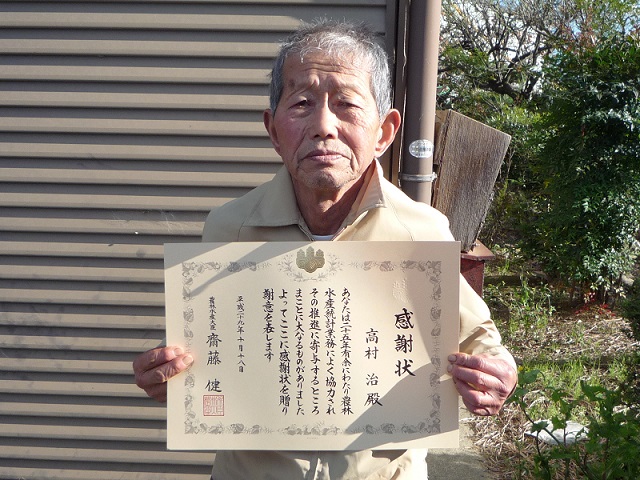 感謝状
高村 治 殿
あなたは二十五年有余にわたり農林
水産統計業務によく協力され
その推進に寄与するところ
まことに大なるものがありました
よってここに感謝状を贈り
謝意を表します
平成二十九年十月十八日
農林水産大臣 齋藤 健